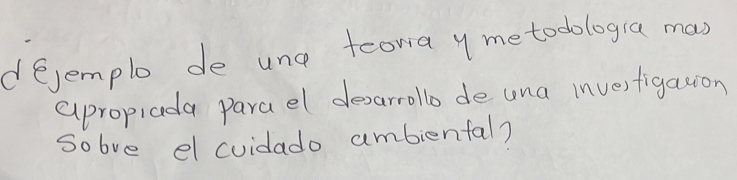 dEjemplo de una teoria y metodologia mas
apropiada para el desarrollo de una investigacion
sobre el cuidado ambiental?